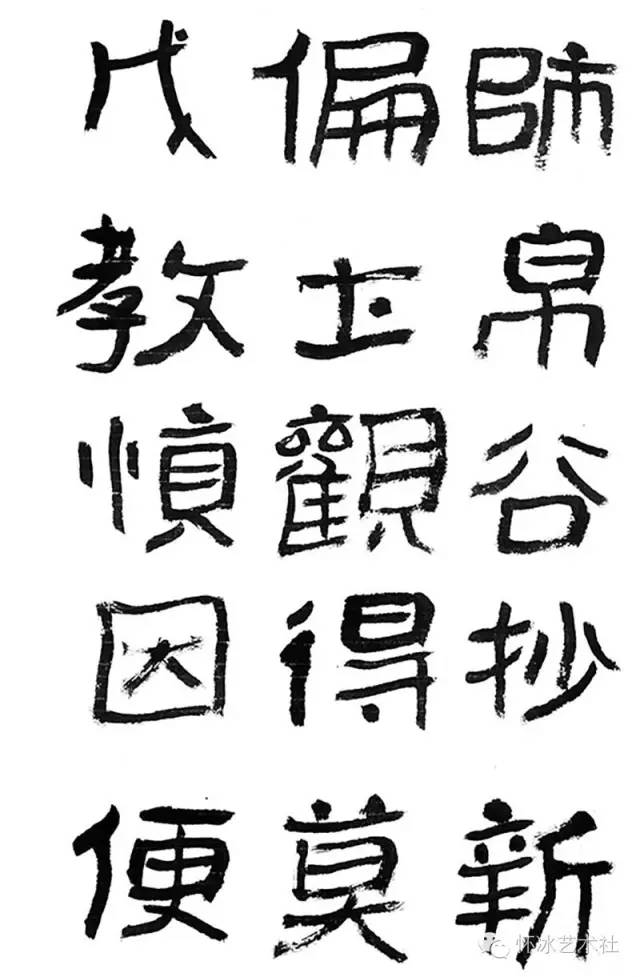 師帛谷抄新
偏圡觀得莫
教慎因便
怀冰艺术社